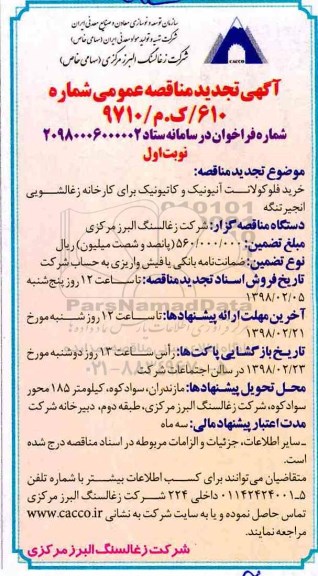 سازمان توسعه و نوسازی معادن و صنایع معدنی ایران
شرکت تهیه و تولید مواد معدنی ایران (سهامی خاص)
شرکت زغالسنگ البرز مرکزی (سهامی خاص)
CACCO
آگهی تجدید مناقصه عمومی شماره
۶۱۰/ک.م/۹۷۱۰
شماره فراخوان در سامانه ستاد ۲۰۹۸۰۰۰۶۰۰۰۰۰۲
نوبت اول
موضوع تجدید مناقصه:
خرید فلوکولانت آنیونیک و کاتیونیک برای کارخانه زغالشویی
انجیرتنگه
دستگاه مناقصه گزار: شرکت زغالسنگ البرز مرکزی
مبلغ تضمین: ۵۶۰/۰۰۰/۰۰۰ (پانصد و شصت میلیون) ریال
نوع تضمین: ضمانت‌نامه بانکی یا فیش واریزی به حساب شرکت
تاریخ فروش اسناد تجدید مناقصه: تا ساعت ۱۲ روز پنج‌شنبه
۱۳۹۸/۰۲/۰۵
آخرین مهلت ارائه پیشنهادها: تا ساعت ۱۲ روز شنبه مورخ
۱۳۹۸/۰۲/۲۱
تاریخ بازگشایی پاکت‌ها: رأس ساعت ۱۳ روز دوشنبه مورخ
۱۳۹۸/۰۲/۲۳ در سالن اجتماعات شرکت
محل تحویل پیشنهادها: مازندران، سوادکوه، کیلومتر ۱۸۵ محور
سوادکوه، شرکت زغالسنگ البرز مرکزی، طبقه دوم، دبیرخانه شرکت
مدت اعتبار پیشنهاد مالی: سه ماه
ـ سایر اطلاعات، جزئیات و الزامات مربوطه در اسناد مناقصه درج شده
است.
متقاضیان می‌توانند برای کسب اطلاعات بیشتر با شماره تلفن
۵-۰۱۱۴۲۴۲۴۰۰۱ داخلی ۲۲۴ شرکت زغالسنگ البرز مرکزی
تماس حاصل نموده و یا به سایت شرکت به نشانی www.cacco.ir
مراجعه نمایند.
شرکت زغالسنگ البرز مرکزی
ParsNamadData